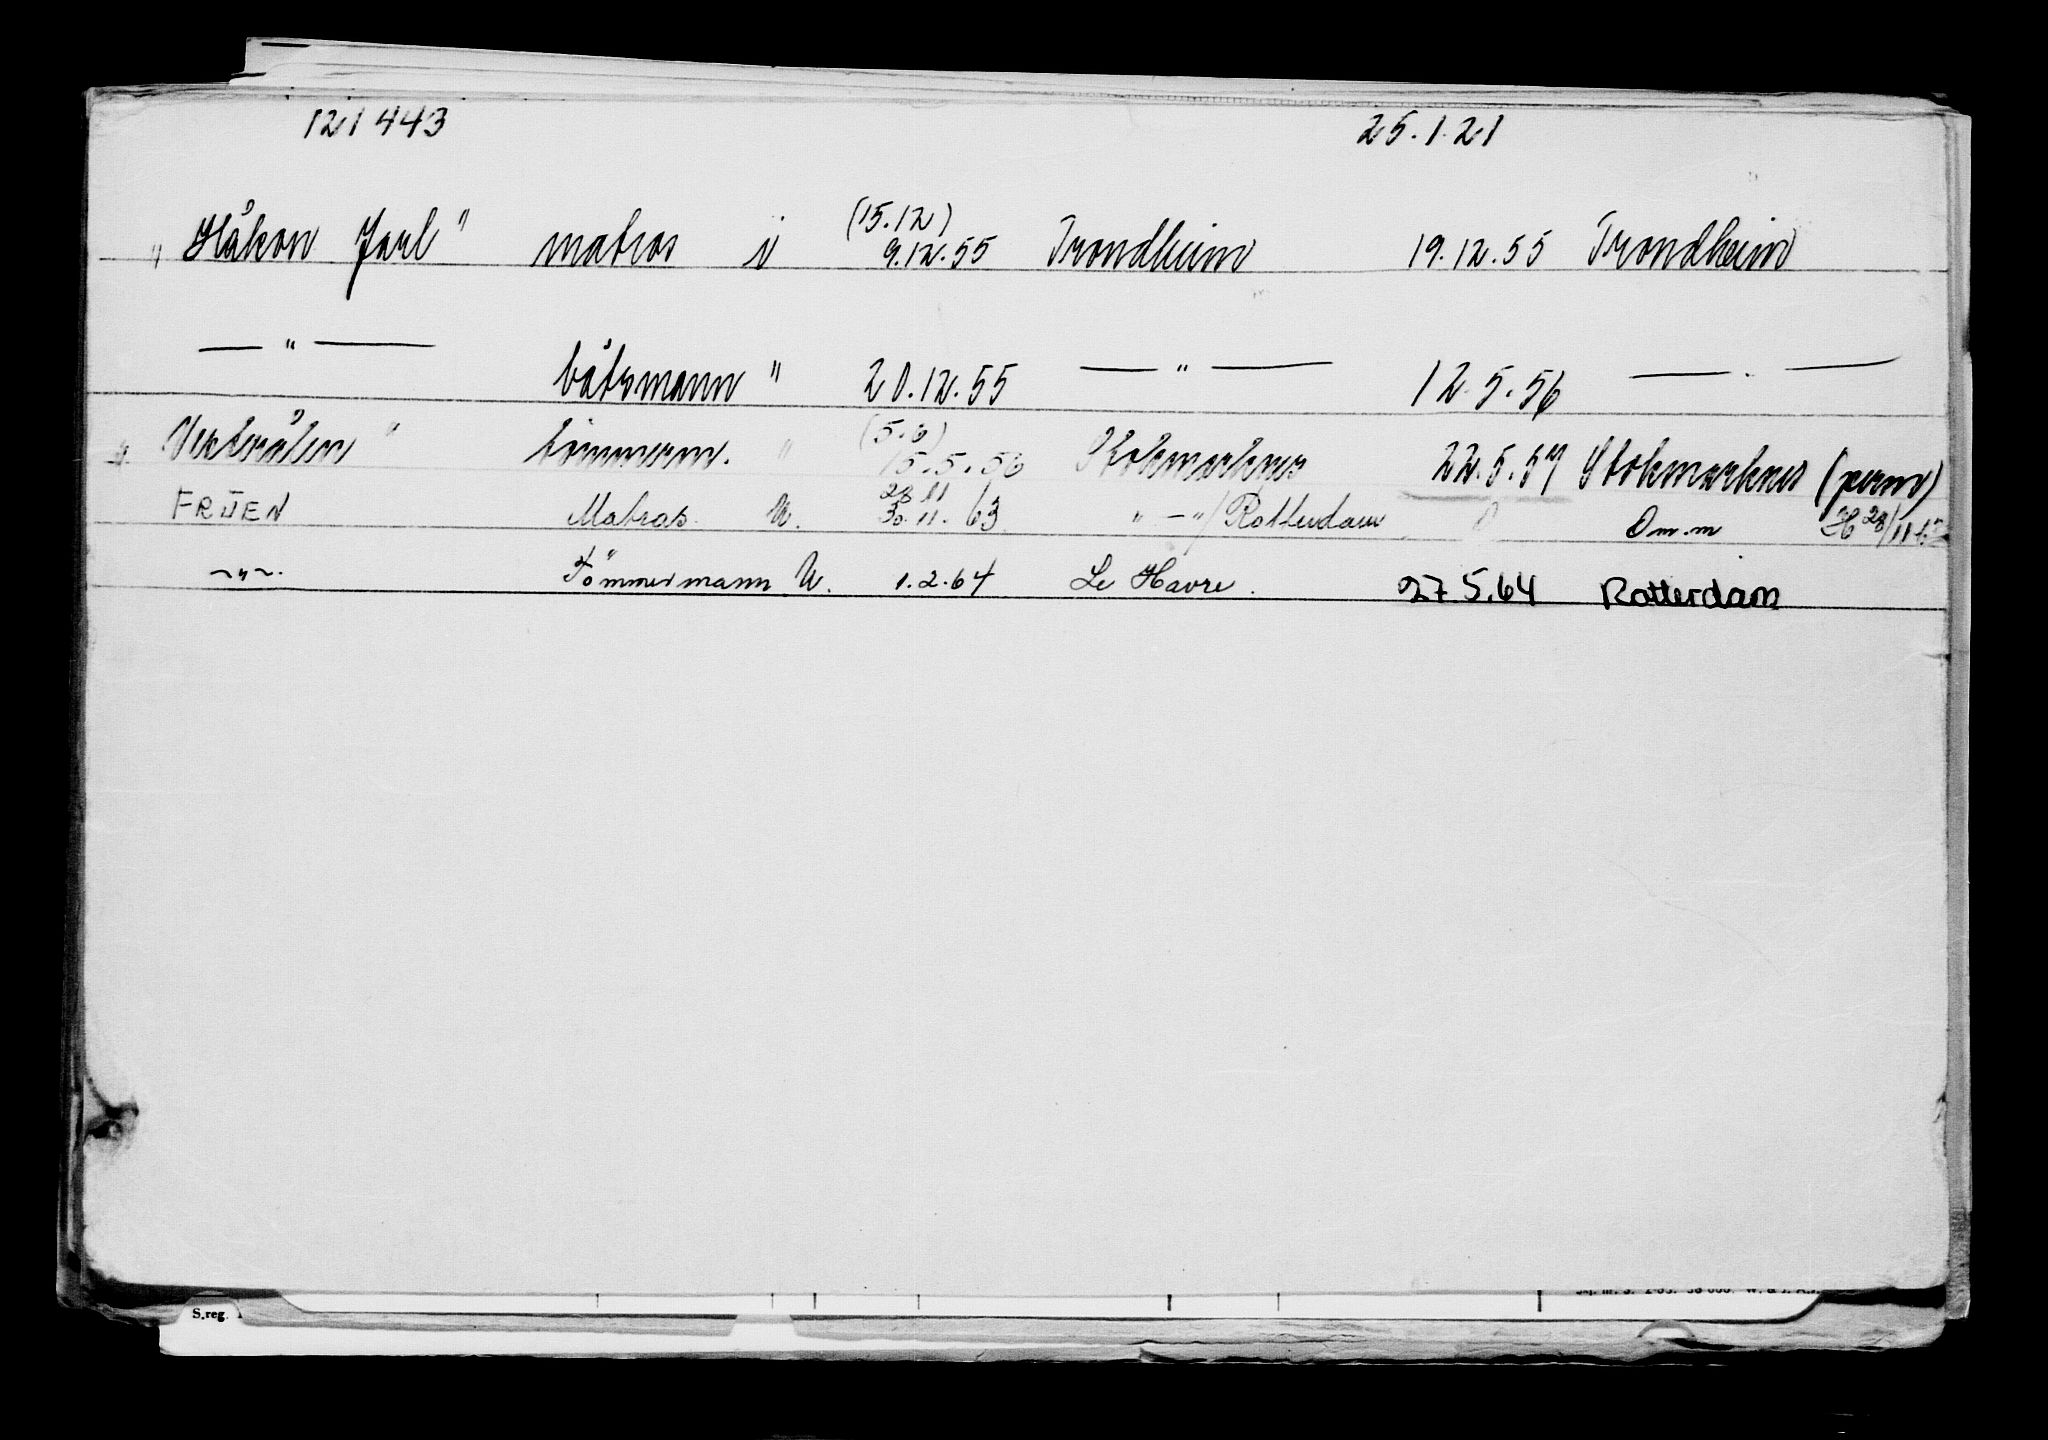 121443 25.1.21
(15.12)
"Håkon Jarl" matros i 9.12.55 Trondheim 19.12.55 Trondheim
— " — båtsmann " 20.12.55 — " — 12.5.56 — " —
(5.6)
"Vesterålen" tømmerm. " 15.5.56 Stokmarknes 22.5.57 Stokmarknes (perm)
28 11
FRIEN Matros. U. 30.11.63 " — "/Rotterdam O Om.m 28/11
~"~. Tömmermann U. 1.2.64 Le Havre. 27.5.64 Rotterdam
S.reg.